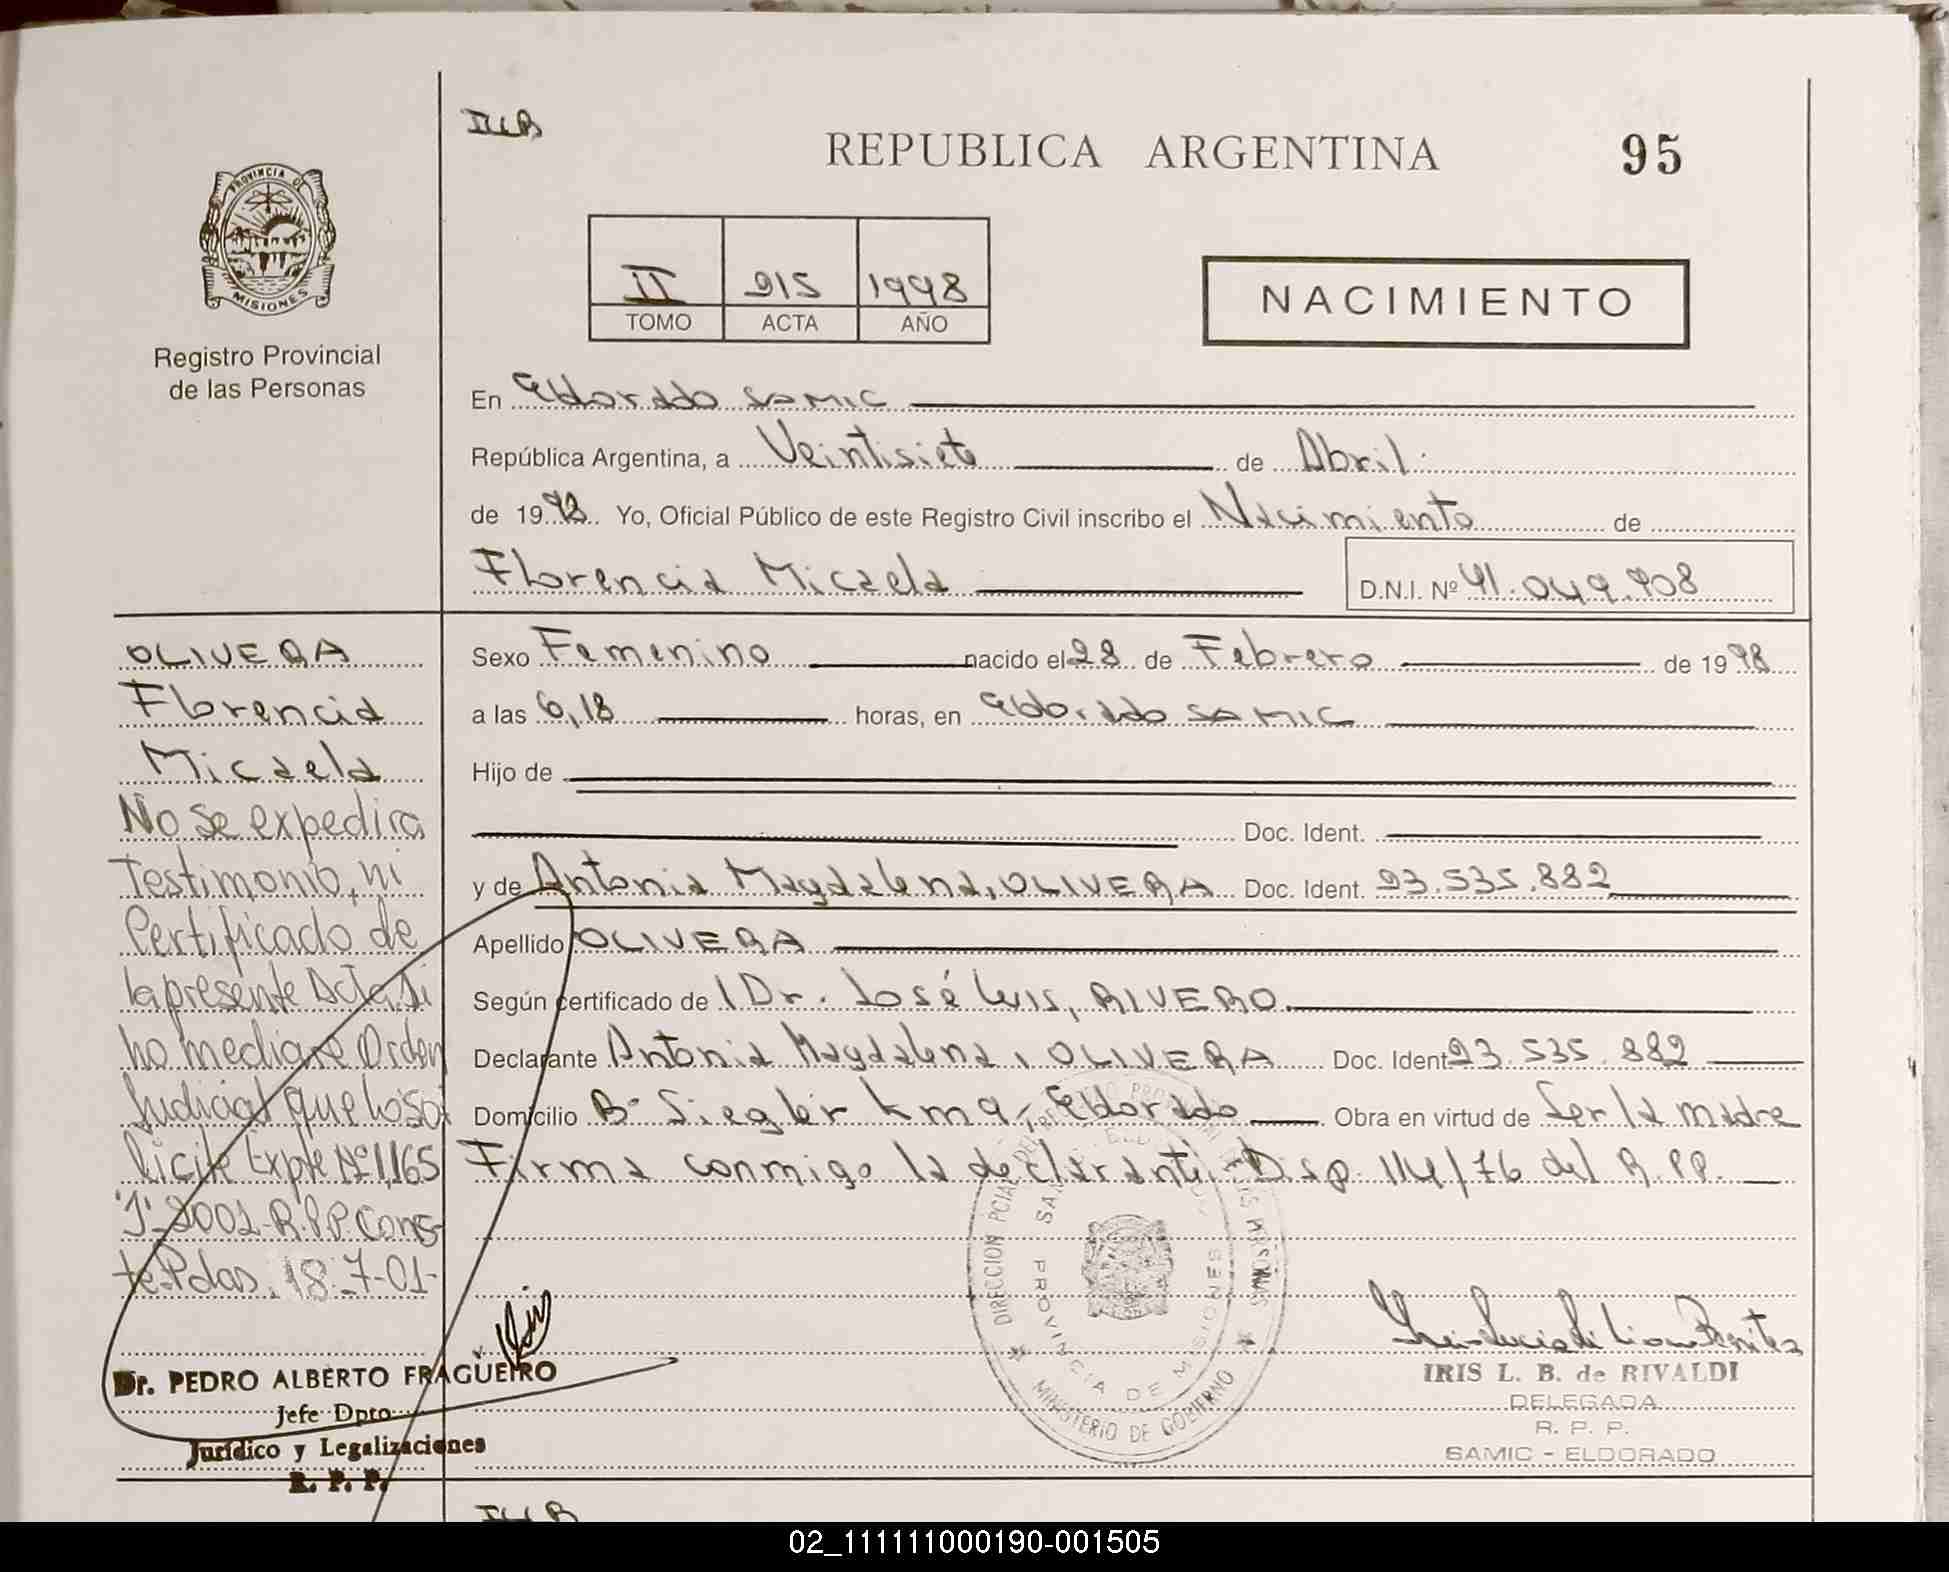 IILB
REPUBLICA ARGENTINA
95
PROVINCIA DE
MISIONES
Registro Provincial
de las Personas
II 915 1998
TOMO ACTA AÑO
NACIMIENTO
En Eldorado SAMIC
República Argentina, a Veintisiete de Abril.
de 1998. Yo, Oficial Público de este Registro Civil inscribo el Nacimiento de
Florencia Micaela D.N.I. Nº 41.049.908
OLIVERA
Florencia
Micaela
No se expedira
Testimonio, ni
Certificado de
la presente Acta si
no mediare Orden
Judicial que lo so
licite Expte Nº 1165
"J"-2001-R.P.P. Cons-
te Pdas. 18-7-01-
Dr. PEDRO ALBERTO FRAGUEIRO
Jefe Dpto.
Jurídico y Legalizaciones
R. P. P.
Sexo Femenino nacido el 28 de Febrero de 1998
a las 6,18 horas, en Eldorado SAMIC
Hijo de
Doc. Ident.
y de Antonia Magdalena, OLIVERA Doc. Ident. 23.535.882
Apellido OLIVERA
Según certificado de l Dr. José Luis, RIVERO.
Declarante Antonia Magdalena, OLIVERA Doc. Ident 23.535.882
Domicilio Bº Siegler km 9, Eldorado Obra en virtud de Ser la madre
Firma conmigo la declarante - Disp. 114/76 del R.P.P.
DIRECCION PCIAL. DEL REGISTRO PROVINCIAL DE LAS PERSONAS
PROVINCIA DE MISIONES
MINISTERIO DE GOBIERNO
IRIS L. B. de RIVALDI
DELEGADA
R. P. P.
SAMIC - ELDORADO
IILB
02_111111000190-001505